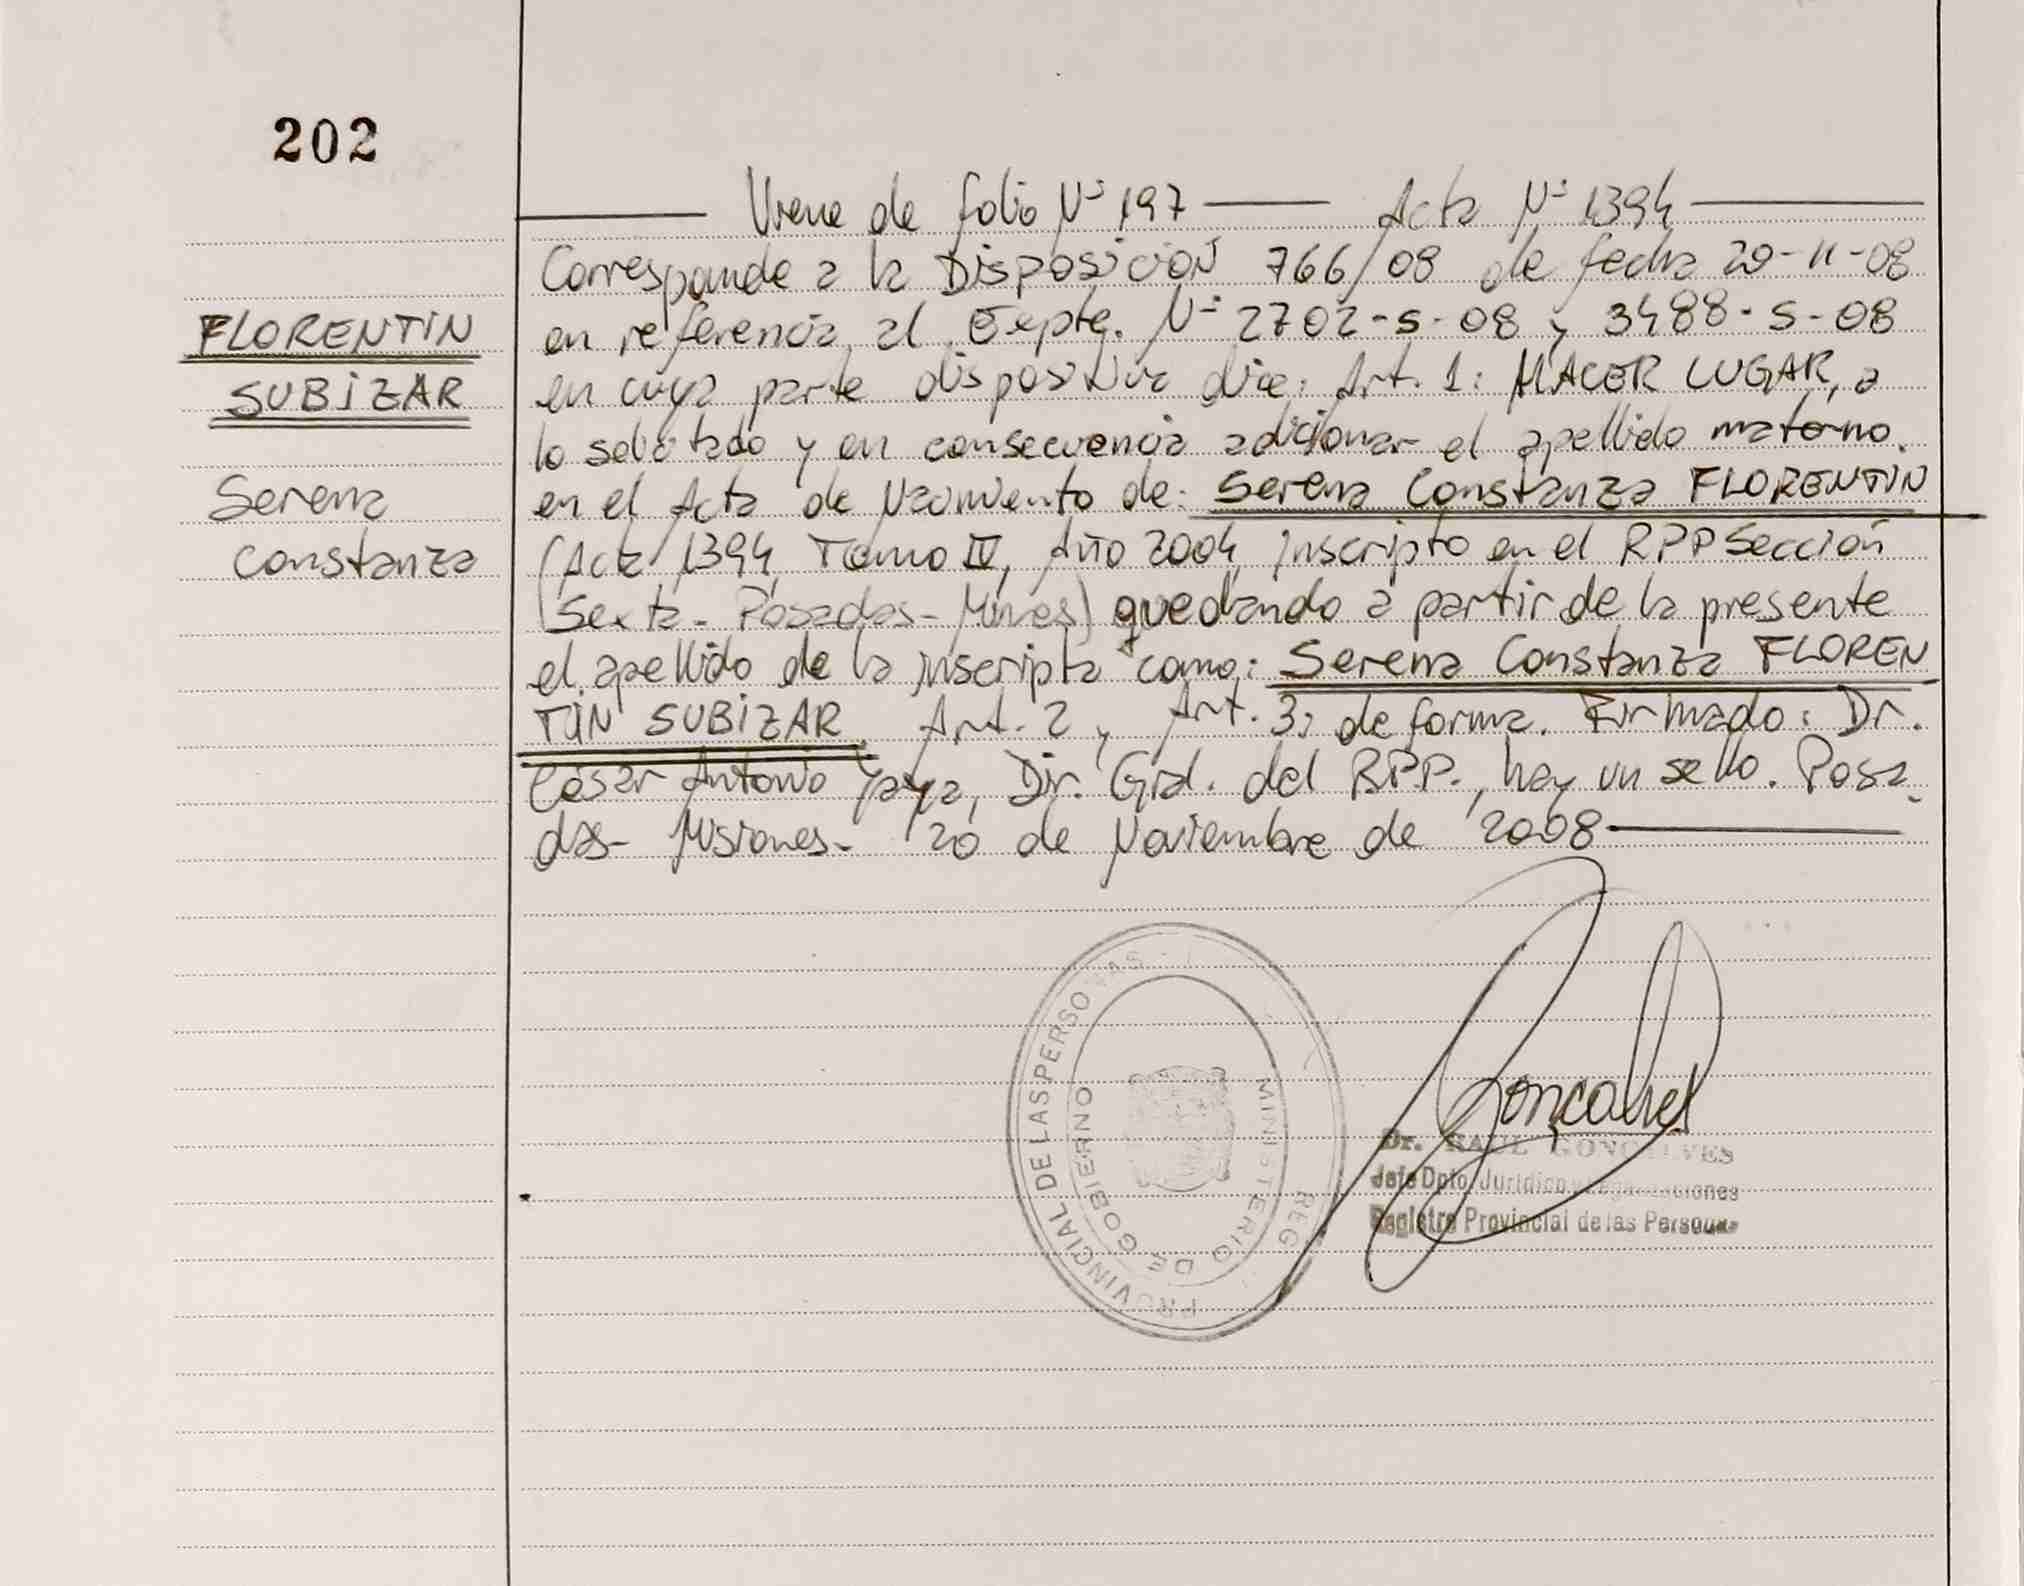 202
Viene de folio Nº 197 —— Acta Nº 1394
Corresponde a la Disposición 766/08 de fecha 20-11-08
en referencia al Expte. Nº 2702-S-08 y 3488-S-08
en cuya parte dispositiva dice: Art. 1: HACER LUGAR, a
lo solicitado y en consecuencia adicionar el apellido materno.
en el Acta de Nacimiento de: Serena Constanza FLORENTIN
(Acta 1394, Tomo IV, Año 2004, inscripto en el RPP Sección
Sexta - Posadas - Mnes) quedando a partir de la presente
el apellido de la inscripta como: Serena Constanza FLOREN
TIN SUBIZAR. Art. 2 y Art. 3: de forma. Firmado: Dr.
César Antonio Yaya, Dir. Gral. del RPP., hay un sello. Posa
das - Misiones - 20 de Noviembre de 2008
FLORENTIN
SUBIZAR
Serena
Constanza
REG PROVINCIAL DE LAS PERSONAS
MINISTERIO DE GOBIERNO
Goncalves
Dr. RAUL GONCALVES
Jefe Dpto. Jurídico y
Registro Provincial de las Personas